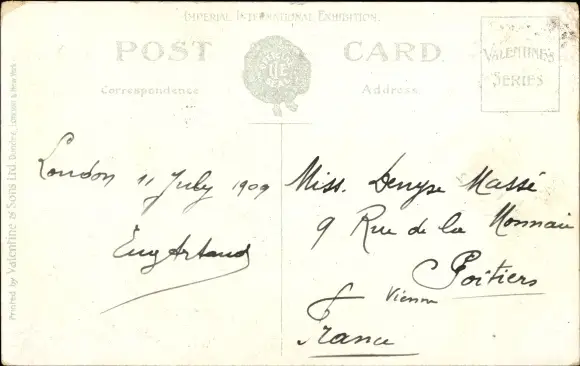 IMPERIAL INTERNATIONAL EXHIBITION.
POST CARD.
Correspondence
Address
VALENTINE'S
SERIES
Printed by Valentine & Sons Ltd Dundee, London & New York
London 11 July 1909
Eug Artaud
Miss. Denyse Massé
9 Rue de la Monnaie
Poitiers
Vienne
France